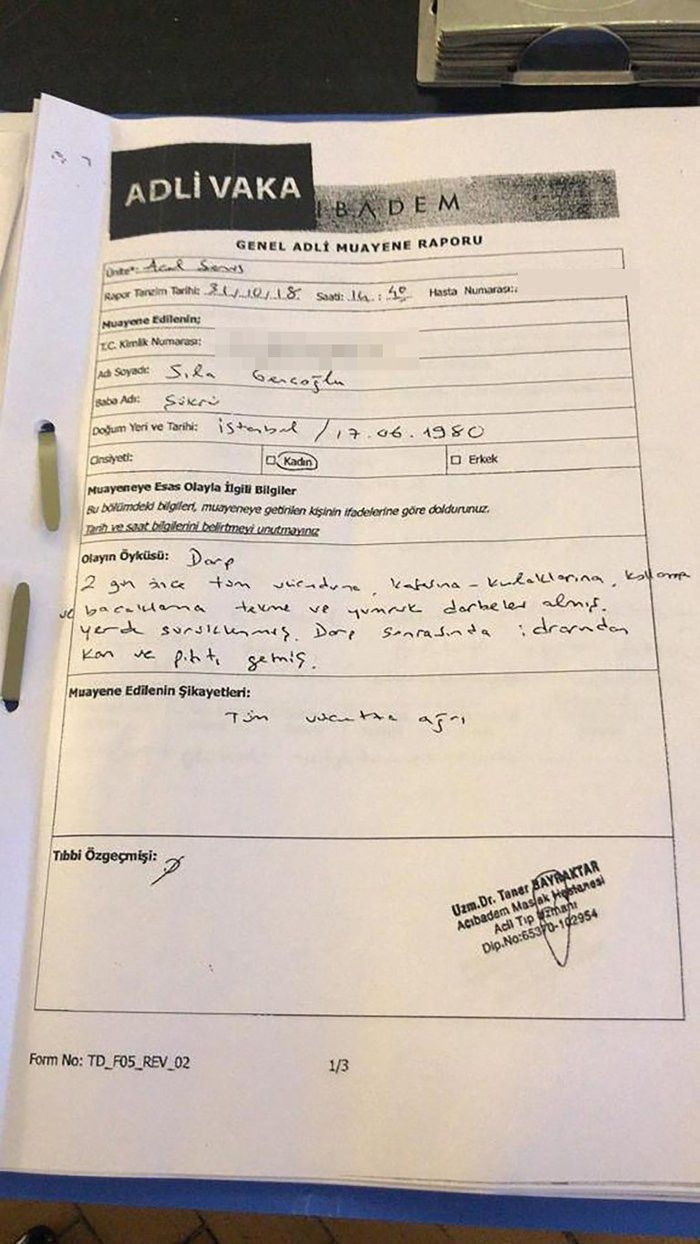 ADLİ VAKA
IBADEM
GENEL ADLİ MUAYENE RAPORU
Ünite*: Acil Servis
Rapor Tanzim Tarihi: 31/10/18 Saati: 14:40 Hasta Numarası:
Muayene Edilenin;
T.C. Kimlik Numarası:
Adı Soyadı: Sıla Gençoğlu
Baba Adı: Şükrü
Doğum Yeri ve Tarihi: İstanbul / 17.06.1980
Cinsiyeti: Kadın Erkek
Muayeneye Esas Olayla İlgili Bilgiler
Bu bölümdeki bilgileri, muayeneye getirilen kişinin ifadelerine göre doldurunuz.
Tarih ve saat bilgilerini belirtmeyi unutmayınız
Olayın Öyküsü: Darp
2 gün önce tüm vücuduna, kafasına - kulaklarına, kollarına
ve bacaklarına tekme ve yumruk darbeleri almış.
yerde sürüklenmiş. Darp sonrasında idrarından
kan ve pıhtı gelmiş.
Muayene Edilenin Şikayetleri:
Tüm vücutta ağrı
Tıbbi Özgeçmişi:
Uzm.Dr. Taner BAYRAKTAR
Acıbadem Maslak Hastanesi
Acil Tıp Uzmanı
Dip.No:65370-102954
Form No: TD_F05_REV_02
1/3